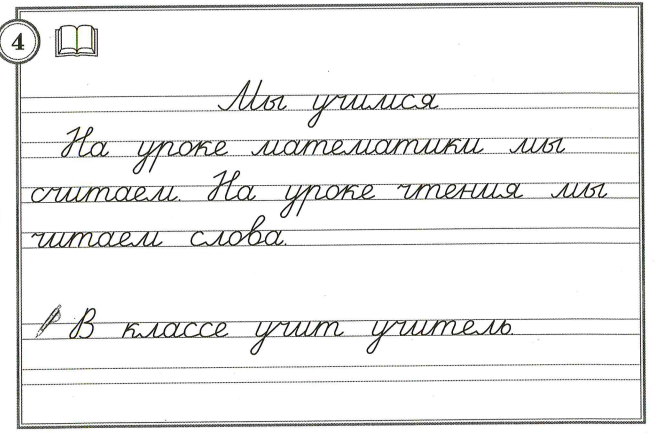 4
Мы учимся
На уроке математики мы
считаем. На уроке чтения мы
читаем слова.
В классе учит учитель.